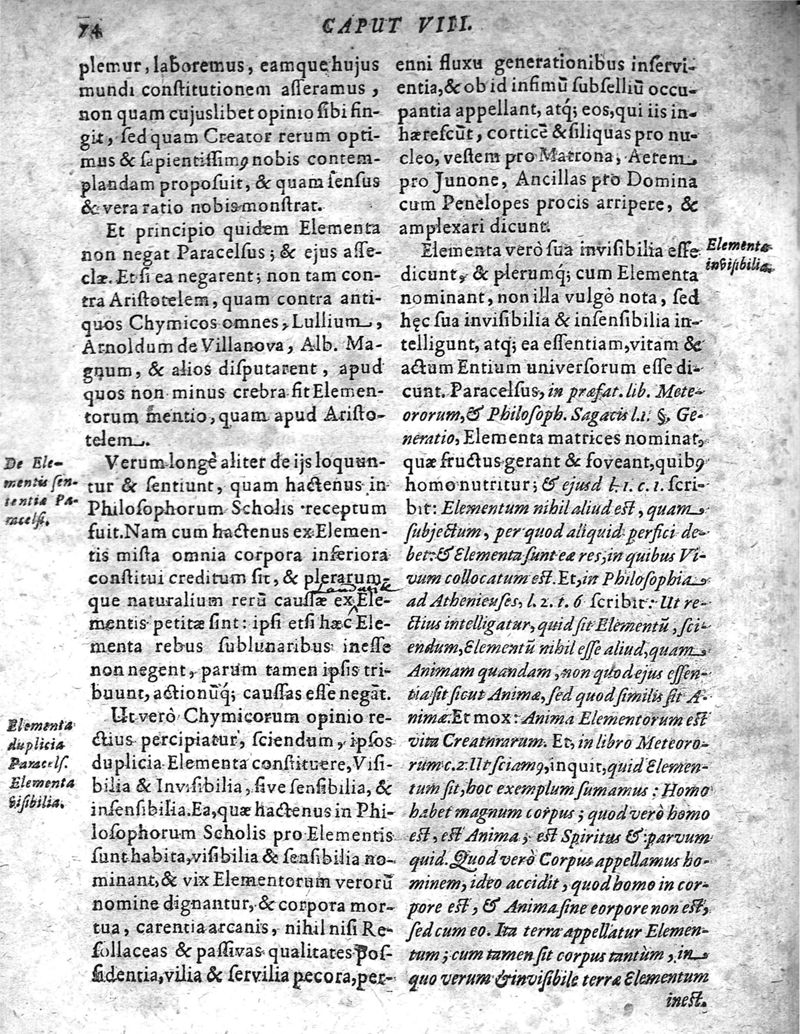 74
CAPUT VIII.
plemur, laboremus, eamque hujus
mundi constitutionem asseramus,
non quam cujuslibet opinio sibi fin-
git, sed quam Creator rerum opti-
mus & sapientissimꝰ nobis contem-
plandam proposuit, & quam sensus
& vera ratio nobis monstrat.
Et principio quidem Elementa
non negat Paracelsus; & ejus asse-
clæ. Et si ea negarent; non tam con-
tra Aristotelem, quam contra anti-
quos Chymicos omnes, Lullium,
Arnoldum de Villanova, Alb. Ma-
gnum, & alios disputarent, apud
quos non minus crebra fit Elemen-
torum mentio, quam apud Aristo-
telem.
De Ele-
mentis sen-
tentia Pa-
racelsi.
Verum longè aliter de ijs loquun-
tur & sentiunt, quam hactenus in
Philosophorum Scholis receptum
fuit. Nam cum hactenus ex Elemen-
tis mista omnia corpora inferiora
constitui creditum sit, & plerarum-
que naturalium rerū caussæ ex Ele-
mentis petitæ sint: ipsi etsi hæc Ele-
menta rebus sublunaribus inesse
non negent, parum tamen ipsis tri-
buunt, actionūq; caussas esse negāt.
Elementa
duplicia
Paracels.
Elementa
visibilia.
Ut verò Chymicorum opinio re-
ctius percipiatur, sciendum, ipsos
duplicia Elementa constituere, Visi-
bilia & Invisibilia, sive sensibilia, &
insensibilia. Ea, quæ hactenus in Phi-
losophorum Scholis pro Elementis
sunt habita, visibilia & sensibilia no-
minant, & vix Elementorum verorū
nomine dignantur, & corpora mor-
tua, carentia arcanis, nihil nisi Re-
sollaceas & passivas qualitates pos-
sidentia, vilia & servilia pecora, per-
enni fluxu generationibus inservi-
entia, & ob id infimū subselliū occu-
pantia appellant, atq; eos, qui iis in-
hærescūt, corticē & siliquas pro nu-
cleo, vestem pro Matrona, Aerem
pro Junone, Ancillas pro Domina
cum Penelopes procis arripere, &
amplexari dicunt.
Elementa
invisibilia.
Elementa verò sua invisibilia esse
dicunt, & plerumq; cum Elementa
nominant, non illa vulgò nota, sed
hęc sua invisibilia & insensibilia in-
telligunt, atq; ea essentiam, vitam &
actum Entium universorum esse di-
cunt. Paracelsus, in præfat. lib. Mete-
ororum, & Philosoph. Sagacis l.1. §. Ge-
neratio, Elementa matrices nominat,
quæ fructus gerant & foveant, quibꝰ
homo nutritur; & ejusd l. 1. c. 1. scri-
bit: Elementum nihil aliud est, quam
subjectum, per quod aliquid perfici de-
bet: & Elementa sunt eæ res, in quibus Vi-
vum collocatum est. Et, in Philosophia
ad Athenieuses, l. 2. t. 6 scribit: Ut re-
ctius intelligatur, quid sit Elementū, sci-
endum, Elementū nihil esse aliud, quam
Animam quandam, non quod ejus essen-
tia sit sicut Animæ, sed quod similis sit A-
nimæ. Et mox: Anima Elementorum est
vita Creaturarum. Et, in libro Meteoro-
rum c. 2. Ut sciamꝰ, inquit, quid Elemen-
tum sit, hoc exemplum sumamus: Homo
habet magnum corpus; quod verò homo
est, est Anima; est Spiritus & parvum
quid. Quod verò Corpus appellamus ho-
minem, ideo accidit, quod homo in cor-
pore est, & Anima sine eorpore non est,
sed cum eo. Ita terra appellatur Elemen-
tum; cum tamen sit corpus tantùm, in
quo verum & invisibile terræ Elementum
inest.